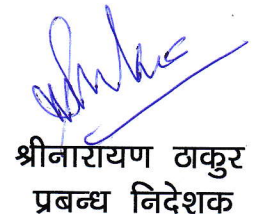 श्रीनारायण ठाकुर
प्रबन्ध निदेशक